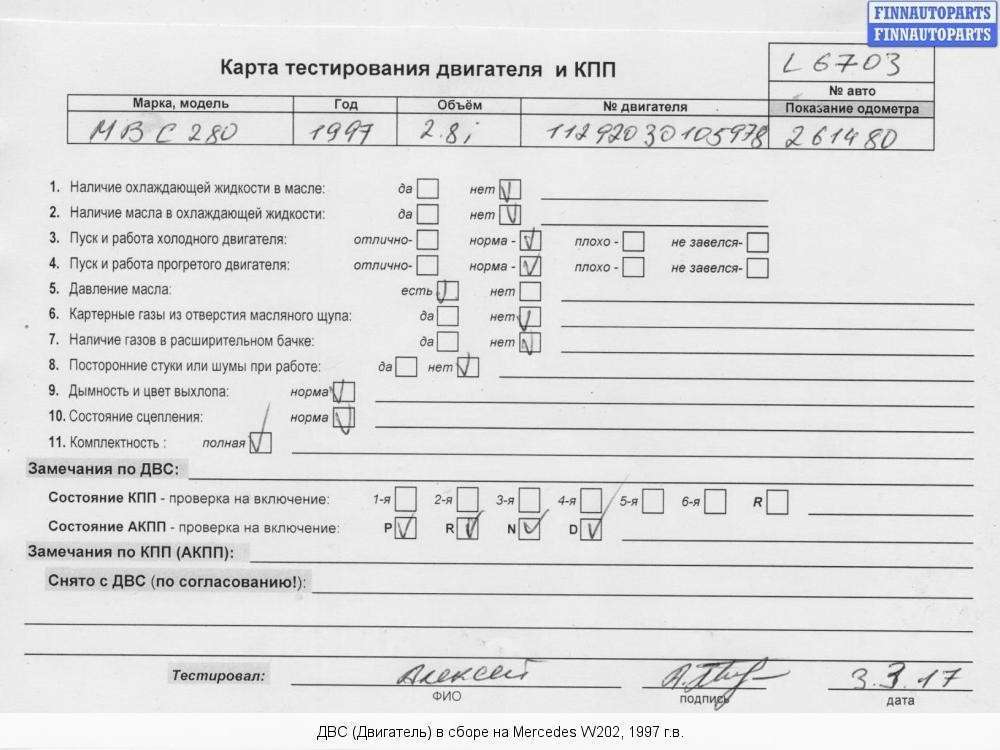 FINNAUTOPARTS
FINNAUTOPARTS
L 6703
Карта тестирования двигателя и КПП
№ авто
Марка, модель Год Объём № двигателя Показание одометра
MB C 280 1997 2.8i 11292030105978 261480
1. Наличие охлаждающей жидкости в масле: да нет
2. Наличие масла в охлаждающей жидкости: да нет
3. Пуск и работа холодного двигателя: отлично- норма - плохо - не завелся-
4. Пуск и работа прогретого двигателя: отлично- норма - плохо - не завелся-
5. Давление масла: есть нет
6. Картерные газы из отверстия масляного щупа: да нет
7. Наличие газов в расширительном бачке: да нет
8. Посторонние стуки или шумы при работе: да нет
9. Дымность и цвет выхлопа: норма
10. Состояние сцепления: норма
11. Комплектность : полная
Замечания по ДВС:
Состояние КПП - проверка на включение: 1-я 2-я 3-я 4-я 5-я 6-я R
Состояние АКПП - проверка на включение: P R N D
Замечания по КПП (АКПП):
Снято с ДВС (по согласованию!):
Тестировал: Алексей 3.3.17
ФИО подпись дата
ДВС (Двигатель) в сборе на Mercedes W202, 1997 г.в.